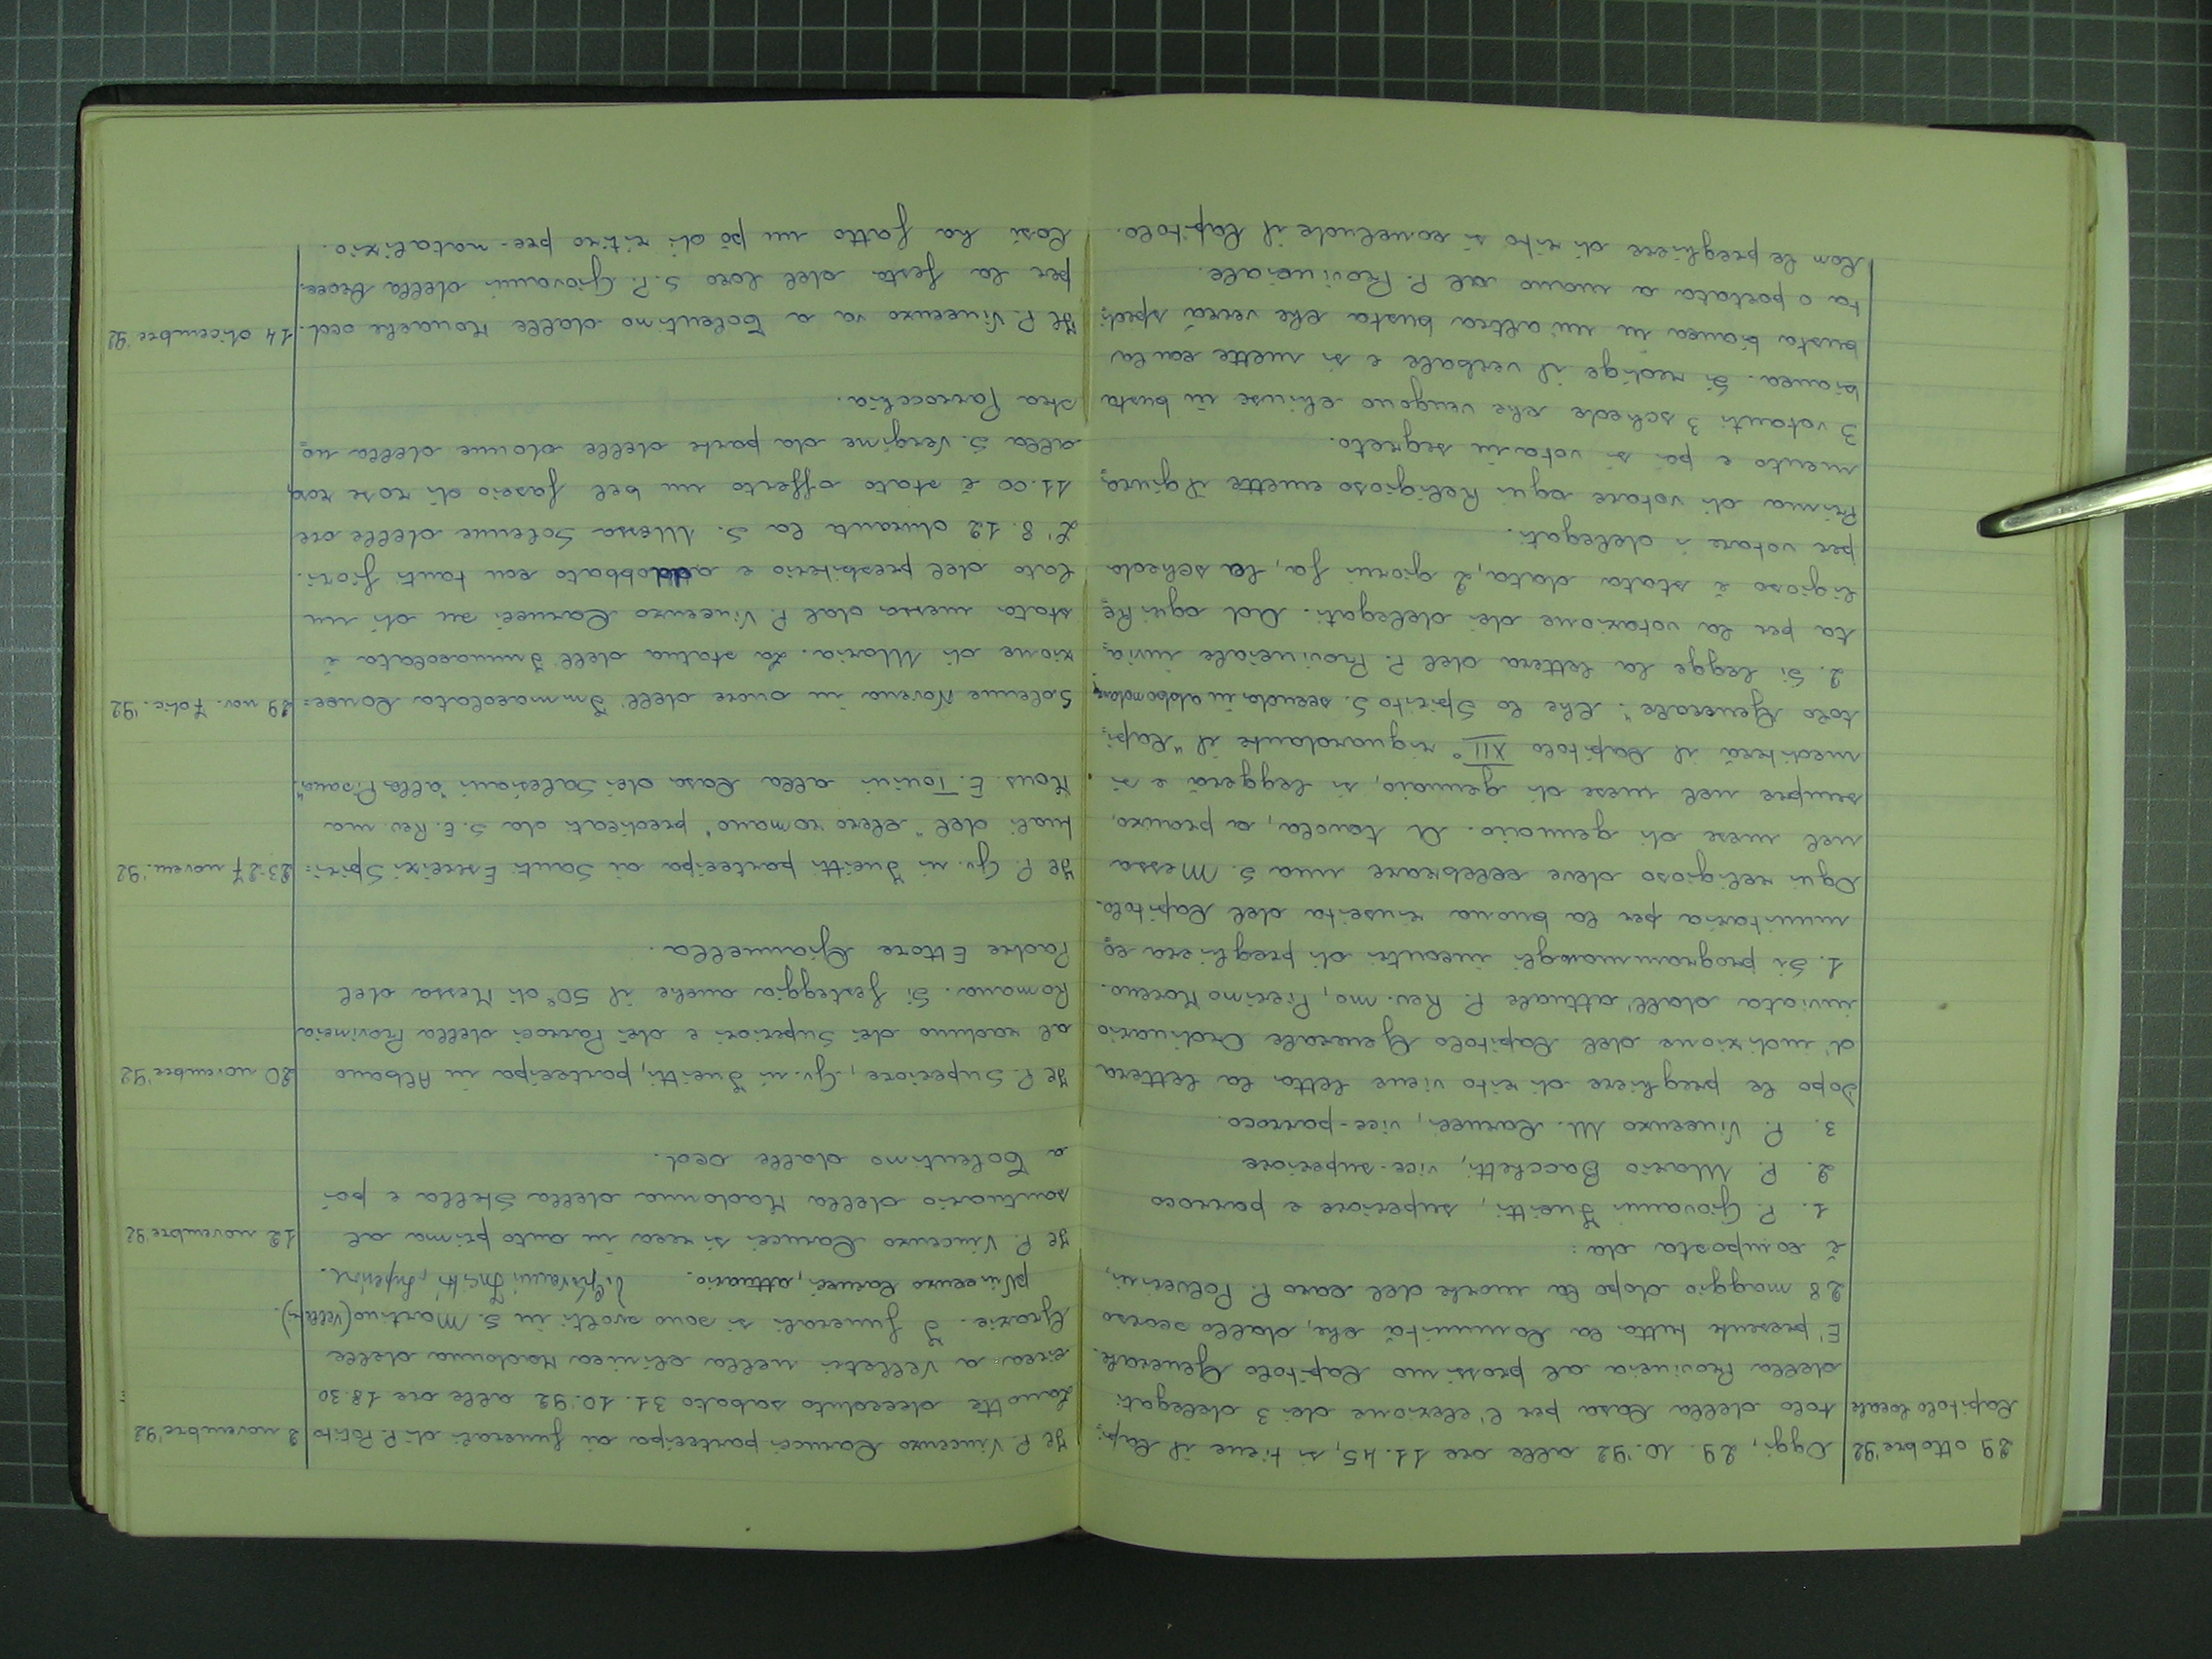 29 ottobre '92 Oggi, 29. 10. '92 alle ore 11.45, si tiene il Capi=
Capitolo locale tolo della Casa per l'elezione dei 3 delegati
della Provincia al prossimo Capitolo Generale.
E' presente tutta la Comunità che, dallo scorso
28 maggio dopo la morte del caro P. Polverini,
è composta da:
1. P. Giovanni Incitti, superiore e parroco
2. P. Mario Bacchetti, vice-superiore
3. P. Vincenzo M. Carucci, vice-parroco.
Dopo le preghiere di rito viene letta la lettera
d'indizione del Capitolo Generale Ordinario
inviata dall'attuale P. Rev.mo, Pierino Moreno.
1. Si programmano gli incontri di preghiera co=
munitaria per la buona riuscita del Capitolo.
Ogni religioso deve celebrare una S. Messa
nel mese di gennaio. A tavola, a pranzo,
sempre nel mese di gennaio, si leggerà e si
mediterà il Capitolo XII° riguardante il "Capi=
tolo Generale". Che lo Spirito S. scenda in abbondanza
2. Si legge la lettera del P. Provinciale invia=
ta per la votazione dei delegati. Ad ogni Re=
ligioso è stata data, 2 giorni fa, la scheda
per votare i delegati.
Prima di votare ogni Religioso emette il giura=
mento e poi si vota in segreto.
3 votanti 3 schede che vengono chiuse in busta
bianca. Si redige il verbale e si mette con la
busta bianca in un'altra busta che verrà spedi=
ta o portata a mano al P. Provinciale.
Con le preghiere di rito si conclude il Capitolo.
Il P. Vincenzo Carucci partecipa ai funerali di P. Potito 2 novembre '92
Zanotte deceduto sabato 31. 10. 92 alle ore 18.30
circa a Velletri nella clinica Madonna delle
Grazie. I funerali si sono svolti in S. Martino (Velletri).
p. Vincenzo Carucci, attuario. P. Giovanni Incitti, Superiore.
Il P. Vincenzo Carucci si reca in auto prima al 12 novembre '92
santuario della Madonna della Stella e poi
a Tolentino dalle ocd.
Il P. Superiore, Gv.ni Incitti, partecipa in Albano 20 novembre '92
al raduno dei Superiori e dei Parroci della Provincia
Romana. Si festeggia anche il 50° di Messa del
Padre Ettore Giannella.
Il P. Gv. ni Incitti partecipa ai Santi Esercizi Spiri= 23-27 novem. '92
tuali del "clero romano" predicati da S. E. Rev. ma
Mons. E. Tonini alla Casa dei Salesiani "alla Pisana".
Solenne Novena in onore dell'Immacolata Conce= 29 nov. 7 dic. '92
zione di Maria. La statua dell'Immacolata è
stata messa dal P. Vincenzo Carucci su di un
lato del presbiterio e addobbato con tanti fiori.
L' 8. 12 durante la S. Messa Solenne delle ore
11.00 è stato offerto un bel fascio di rose rosa
alla S. Vergine da parte delle donne della no=
stra Parrocchia.
Il P. Vincenzo va a Tolentino dalle Monache ocd. 14 dicembre '92
per la festa del loro S. P. Giovanni della Croce.
Così ha fatto un pò di ritiro pre-natalizio.